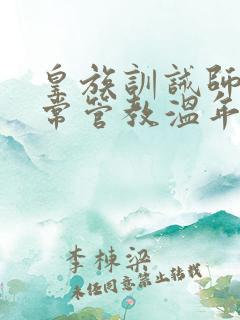 皇族訓誡師
常管教溫年
李棟梁
未經同意禁止轉載